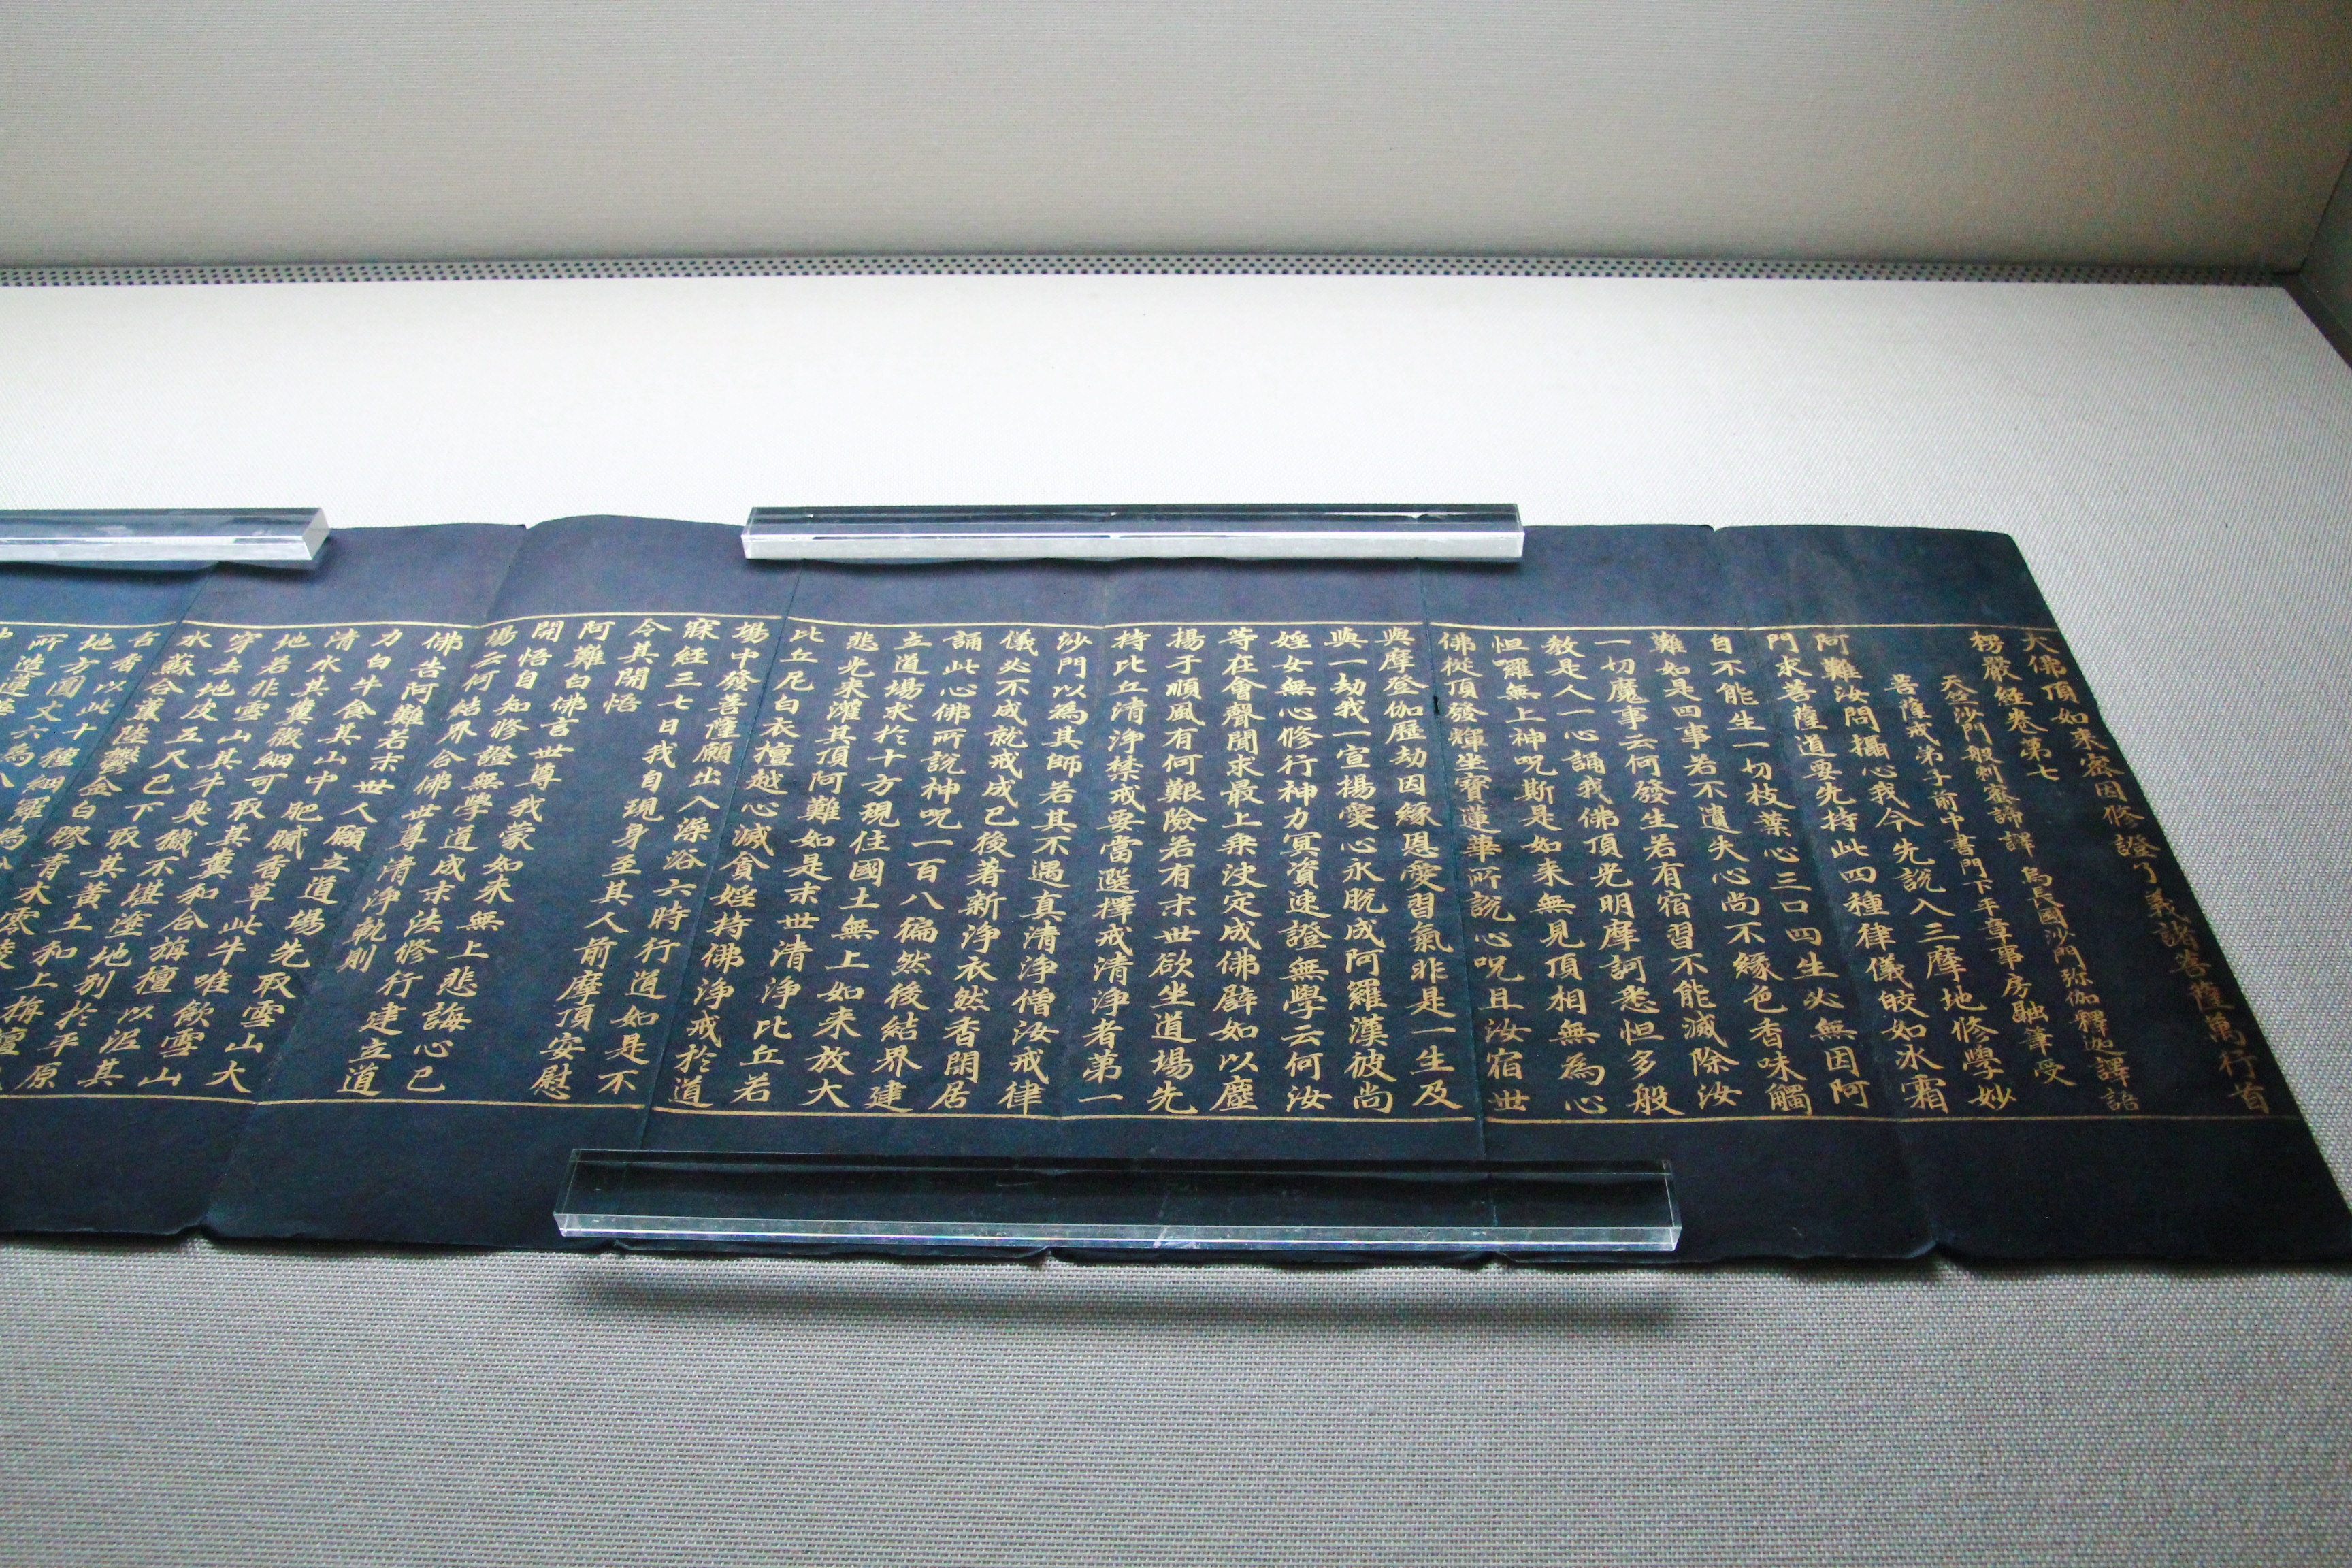 大佛頂如来密因修證了義諸菩薩萬行首
楞嚴経卷第七
天竺沙門般剌蜜諦譯 烏長國沙門弥伽釋迦譯語
菩薩戒弟子前中書門下平章事房融筆受
阿難汝問攝心我今先說入三摩地修學妙
門求菩薩道要先持此四種律儀皎如氷霜
自不能生一切枝葉心三口四生必無因阿
難如是四事若不遺失心尚不緣色香味觸
一切魔事云何發生若有宿習不能滅除汝
教是人一心誦我佛頂光明摩訶悉怛多般
怛羅無上神呪斯是如来無見頂相無為心
佛從頂發輝坐寶蓮華所說心呪且汝宿世
與摩登伽歷劫因緣恩愛習氣非是一生及
與一劫我一宣揚愛心永脫成阿羅漢彼尚
婬女無心修行神力冥資速證無學云何汝
等在會聲聞求最上乗決定成佛譬如以塵
揚于順風有何艱險若有末世欲坐道場先
持比丘清淨禁戒要當選擇戒清淨者第一
沙門以為其師若其不遇真清淨僧汝戒律
儀必不成就戒成已後著新淨衣然香閑居
誦此心佛所說神呪一百八徧然後結界建
立道場求於十方現住國土無上如来放大
悲光来灌其頂阿難如是末世清淨比丘若
比丘尼白衣檀越心滅貪婬持佛淨戒於道
場中發菩薩願出入澡浴六時行道如是不
寐経三七日我自現身至其人前摩頂安慰
令其開悟
阿難白佛言世尊我蒙如来無上悲誨心已
開悟自知修證無學道成末法修行建立道
場云何結界合佛世尊清淨軌則
佛告阿難若末世人願立道場先取雪山大
力白牛食其山中肥膩香草此牛唯飲雪山
清水其糞微細可取其糞和合旃檀以泥其
地若非雪山其牛臭穢不堪塗地別於平原
穿去地皮五尺已下取其黃土和上旃檀
水蘇合薰陸鬱金白膠青木零陵
舌香以此十種細羅為
地方圓丈六為八
所造蓮華